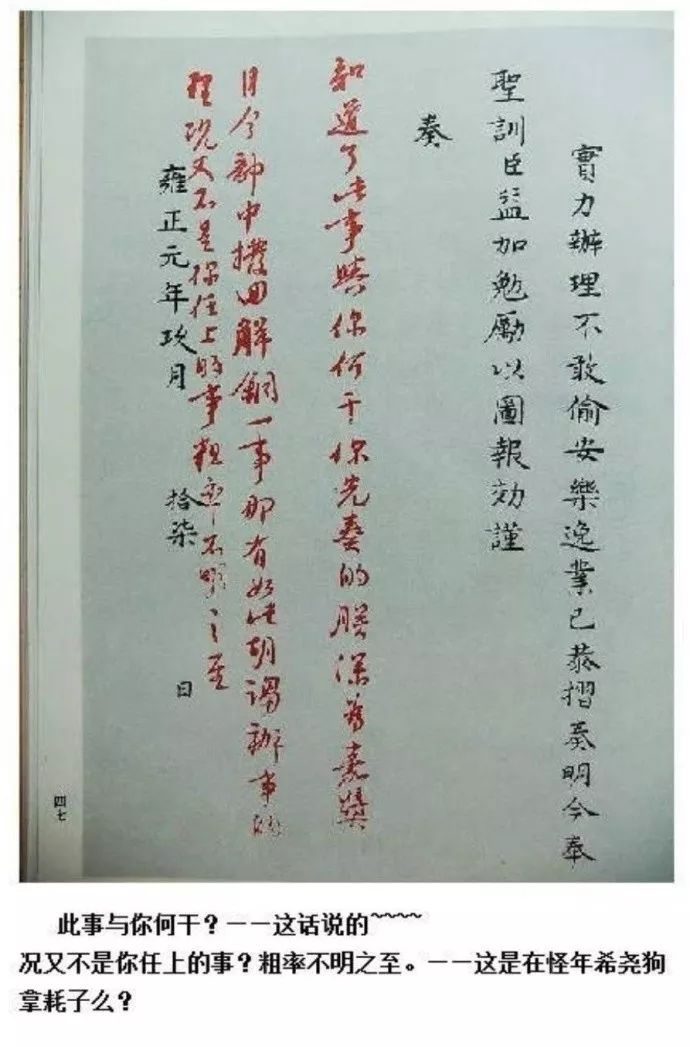 實力辦理不敢偷安樂逸業已恭摺奏明今奉
聖訓臣益加勉勵以圖報効謹
奏
知道了此事與你何干你先奏的朕深為嘉獎
目今部中撥回解銅一事那有如此胡謅辦事的
理况又不是你任上的事粗率不明之至
雍正元年玖月 拾柒 日
四七
此事与你何干？——这话说的~~~~
况又不是你任上的事？粗率不明之至。——这是在怪年希尧狗
拿耗子么？